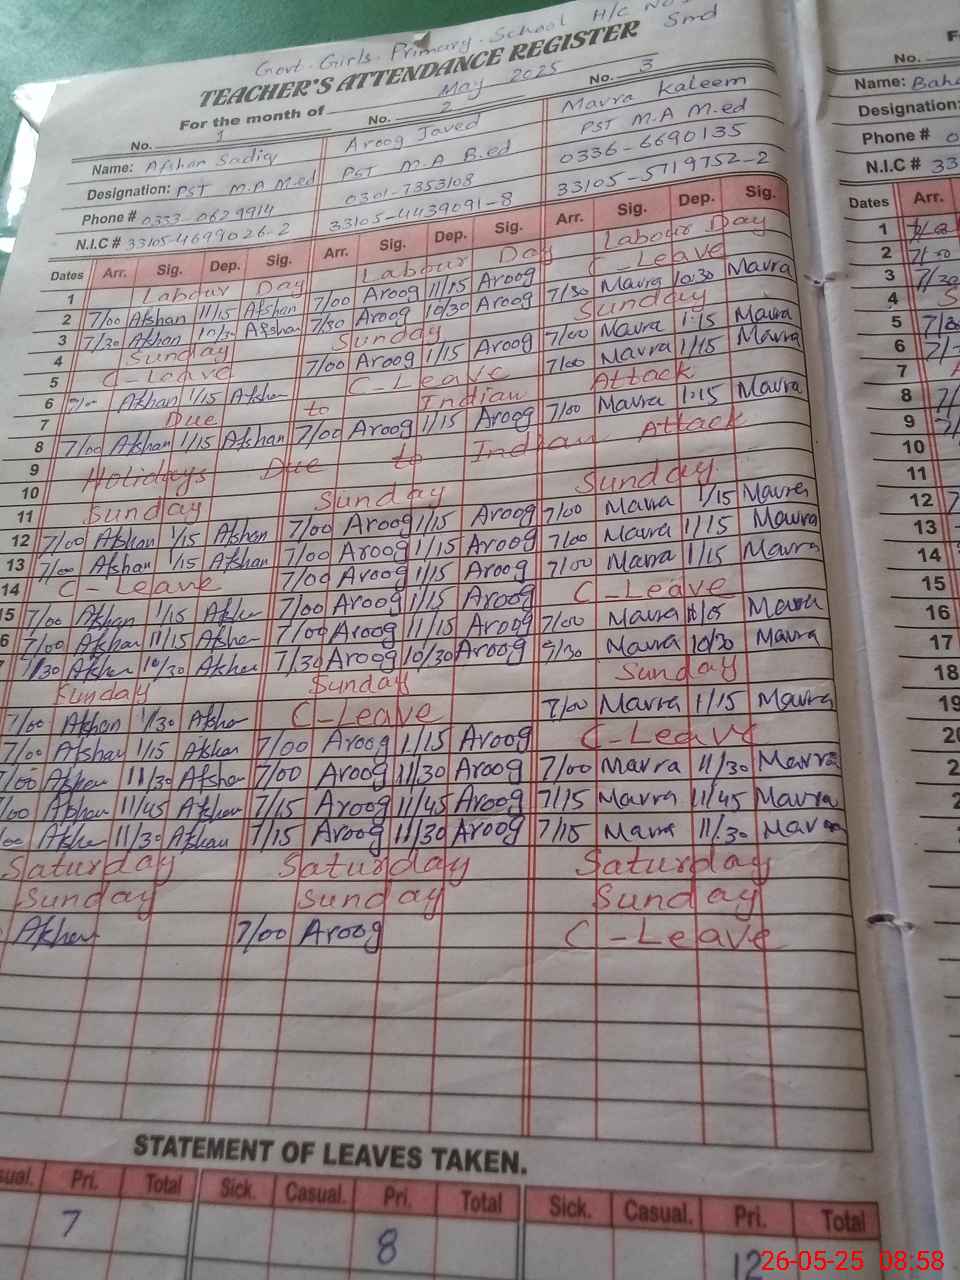 Govt. Girls. Primary. School H/C No
Smd
TEACHER'S ATTENDANCE REGISTER
For the month of May 2025
No. 1 No. 2 No. 3
Name: Afshan Sadiq Arooq Javed Mavra Kaleem
Designation: PST M.A M.ed PST M.A B.ed PST M.A M.ed
Phone # 0333-0629914 0301-7353108 0336-6690135
N.I.C # 33105-4699026-2 33105-4439091-8 33105-5719752-2
Dates Arr. Sig. Dep. Sig. Arr. Sig. Dep. Sig. Arr. Sig. Dep. Sig.
1 Labour Day Labour Day Labour Day
2 7/00 Afshan 11/15 Afshan 7/00 Arooq 11/15 Arooq C-Leave
3 7/30 Afshan 10/30 Afshan 7/30 Arooq 10/30 Arooq 7/30 Mavra 10:30 Mavra
4 Sunday Sunday Sunday
5 C-Leave 7/00 Arooq 1/15 Arooq 7/00 Mavra 1:15 Mavra
6 7/00 Afshan 1/15 Afshan C-Leave 7/00 Mavra 1/15 Mavra
7 Due to Indian Attack
8 7/00 Afshan 1/15 Afshan 7/00 Arooq 1/15 Arooq 7/00 Mavra 1:15 Mavra
9 Holidays Due to Indian Attack
10
11 Sunday Sunday Sunday
12 7/00 Afshan 1/15 Afshan 7/00 Arooq 1/15 Arooq 7/00 Mavra 1/15 Mavra
13 7/00 Afshan 1/15 Afshan 7/00 Arooq 1/15 Arooq 7/00 Mavra 1/15 Mavra
14 C-Leave 7/00 Arooq 1/15 Arooq 7/00 Mavra 1/15 Mavra
15 7/00 Afshan 1/15 Afshan 7/00 Arooq 1/15 Arooq C-Leave
6 7/00 Afshan 11/15 Afshan 7/00 Arooq 11/15 Arooq 7/00 Mavra 11/15 Mavra
7/30 Afshan 10/30 Afshan 7/30 Arooq 10/30 Arooq 7/30 Mavra 10/30 Mavra
Sunday Sunday Sunday
7/00 Afshan 1/30 Afshan C-Leave 7/00 Mavra 1/15 Mavra
7/00 Afshan 1/15 Afshan 7/00 Arooq 1/15 Arooq C-Leave
7/00 Afshan 11/30 Afshan 7/00 Arooq 11/30 Arooq 7/00 Mavra 11/30 Mavra
/00 Afshan 11/45 Afshan 7/15 Arooq 11/45 Arooq 7/15 Mavra 11/45 Mavra
/00 Afshan 11/30 Afshan 7/15 Arooq 11/30 Arooq 7/15 Mavra 11/30 Mavra
Saturday Saturday Saturday
Sunday Sunday Sunday
Afshan 7/00 Arooq C-Leave
STATEMENT OF LEAVES TAKEN.
sual. Pri. Total Sick. Casual. Pri. Total Sick. Casual. Pri. Total
7 8 12
No.
Name: Baha
Designation:
Phone # 0
N.I.C # 33
Dates Arr.
1
2
3 7/30
4 S
5
6
7
8
9
10
11
12
13
14
15
16
17
18
19
26-05-25 08:58